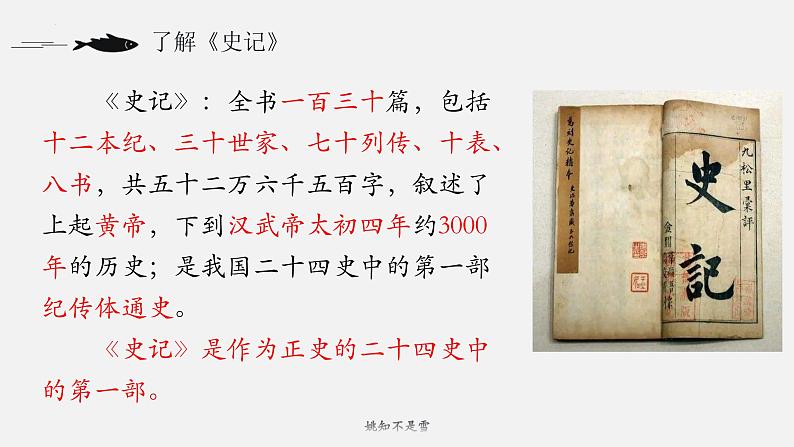 了解《史记》
《史记》：全书一百三十篇，包括
十二本纪、三十世家、七十列传、十表、
八书，共五十二万六千五百字，叙述了
上起黄帝，下到汉武帝太初四年约3000
年的历史；是我国二十四史中的第一部
纪传体通史。
《史记》是作为正史的二十四史中
的第一部。
九松里彙評
史記
姚知不是雪